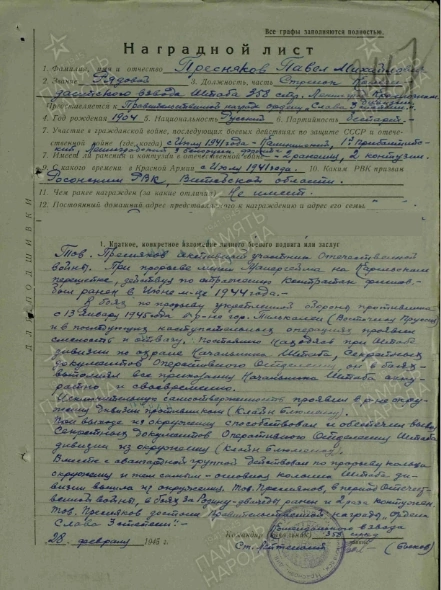 Все графы заполняются полностью.
Наградной лист
1. Фамилия, имя и отчество Пресняков Павел Михайлович
2. Звание Рядовой 3. Должность, часть Стрелок
взвода Штаба 358 стр.
Представляется к Правительственной награде ордену „Слава 3 степени"
4. Год рождения 1904 5. Национальность Русский 6. Партийность беспарт.
7. Участие в гражданской войне, последующих боевых действиях по защите СССР и отечественной войне (где, когда) с Июля 1941 года - Калининский, 1й Прибалтийский
Ленинградский, 3 Белорусский
8. Имеет ли ранения и контузии в отечественной войне - 2 ранения, 2 контузии.
9. С какого времени в Красной Армии с Июля 1941 года. 10. Каким РВК призван
РВК, Витебской области.
11. Чем ранее награжден (за какие отличия) Не имеет
12. Постоянный домашний адрес представляемого к награждению и адрес его семьи.
1. Краткое, конкретное изложение личного боевого подвига или заслуг
Тов. Пресняков активный участник Отечественной
войны. При прорыве линии Маннергейма на Карельском
перешейке, действуя по отражению контратак финнов -
был ранен в Июне м-це 1944 года -
В боях по прорыву укрепленной обороны противника
с 13 Января 1945 года в р-не гор. Пилькален (Восточная Пруссия)
и в последующих наступательных операциях проявил
смелость и отвагу. Постоянно находясь при Штабе
дивизии по охране Начальника Штаба, Секретных
документов Оперативного Отделения он
все приказания Начальника Штаба
и своевременно.
Исключительную самоотверженность проявил в р-не окружения дивизии противником
При выходе из окружения способствовал и обеспечил вывод
Секретных документов Оперативного Отделения Штаба
дивизии из окружения
Вместе с группой действовал по прорыву кольца
окружения и тем самым - основная колонна Штаба дивизии вышла из окружения. Тов. Пресняков, в период Отечественной войны, в боях за Родину - дважды ранен и 2 раза контужен
Тов. Пресняков достоин Правительственной награды „Ордена
Слава 3 степени" -
Командир (начальник) взвода
358
Ст. Лейтенант
28 февраля 1945 г.
ПАМЯТЬ НАРОДА